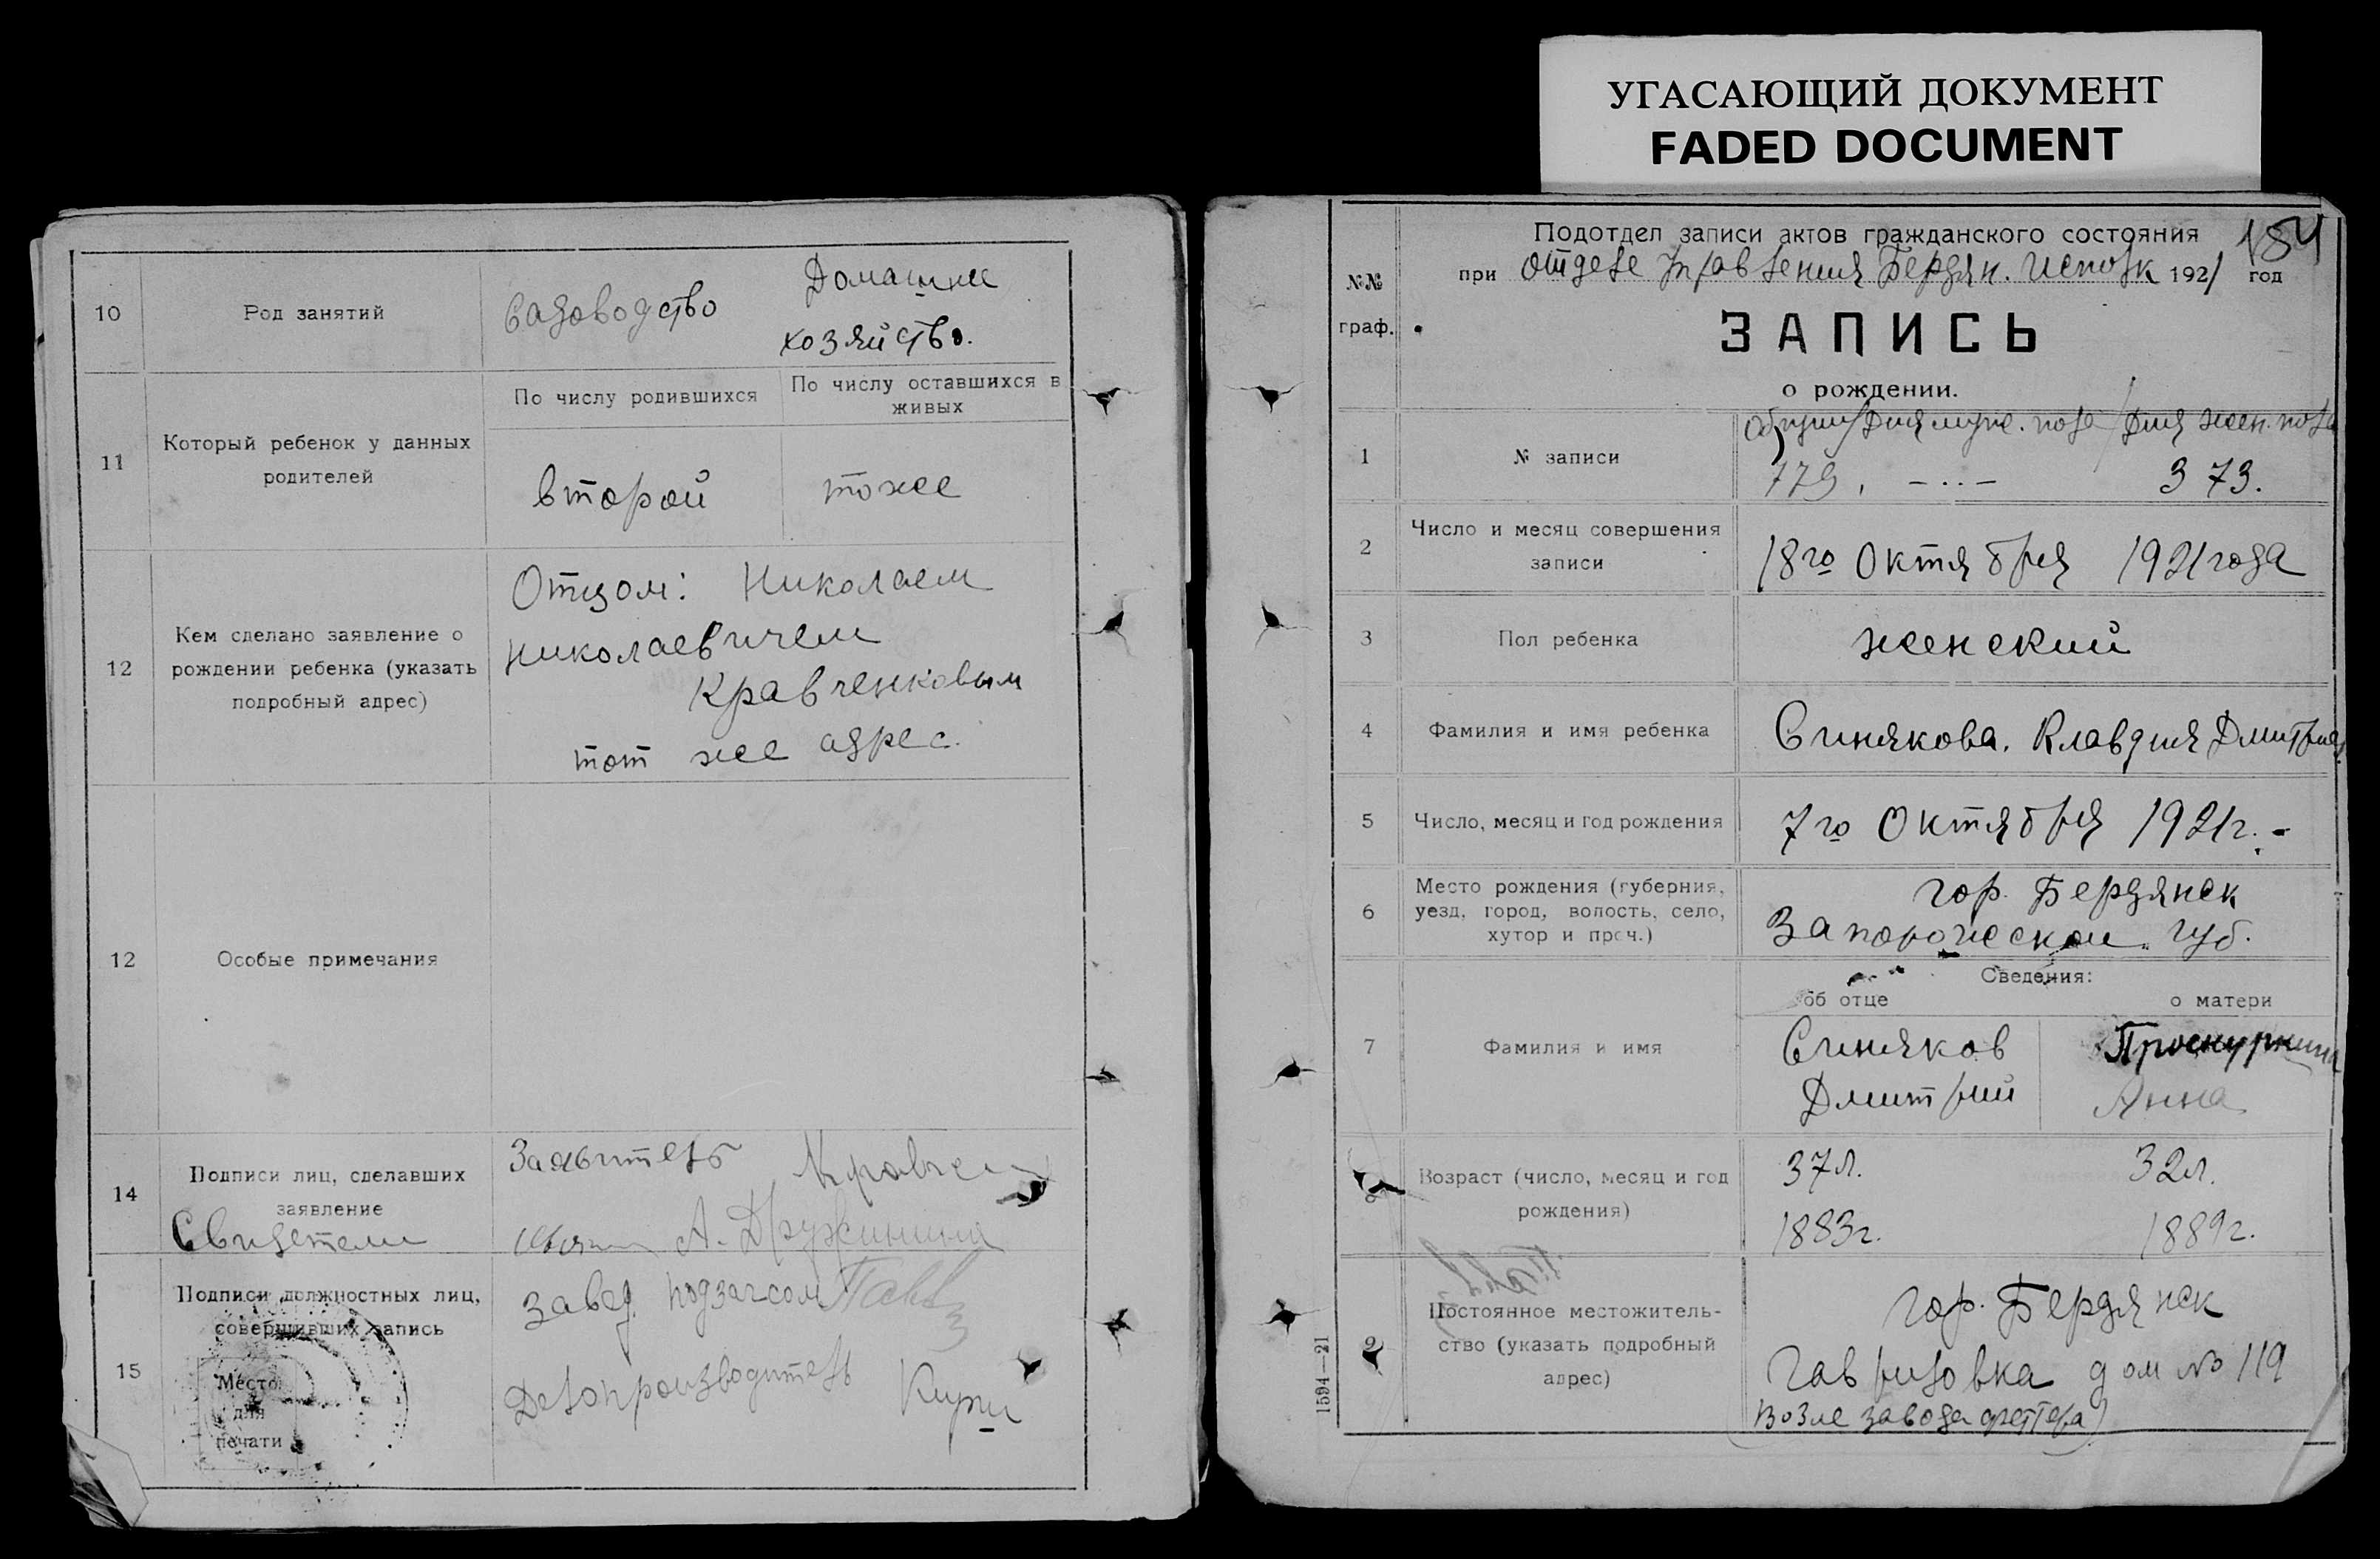 УГАСАЮЩИЙ ДОКУМЕНТ
FADED DOCUMENT
10
Род занятий
Садоводство
Домашнее
хозяйство.
11
Который ребенок у данных
родителей
По числу родившихся
По числу оставшихся в
живых
второй
тоже
12
Кем сделано заявление о
рождении ребенка (указать
подробный адрес)
Отцом: Николаем
Николаевичем
Кравченковым
тот же адрес.
12
Особые примечания
14
Подписи лиц, сделавших
заявление
Свидетели
Заявитель
А. Дружинина
15
Подписи должностных лиц,
совершивших запись
Место
для
печати
Завед. подзагсом
Делопроизводитель
184
№№
граф.
Подотдел записи актов гражданского состояния
при отделе управления Бердян. исполк 1921 год
ЗАПИСЬ
о рождении.
1
№ записи
общий/для муж. пола/для жен. пола
779. – ·· – 373.
2
Число и месяц совершения
записи
18го Октября 1921 года
3
Пол ребенка
женский
4
Фамилия и имя ребенка
Синякова. Клавдия
5
Число, месяц и год рождения
7го Октября 1921г. -
6
Место рождения (губерния,
уезд, город, волость, село,
хутор и проч.)
гор. Бердянск
Запорожской губ.
Сведения:
об отце
о матери
7
Фамилия и имя
Синяков
Дмитрий
Проскурнина
Анна
8
Возраст (число, месяц и год
рождения)
37л.
1883г.
32л.
1889г.
9
Постоянное местожитель-
ство (указать подробный
адрес)
гор. Бердянск
Гавриловка дом № 119
возле завода
1594—21